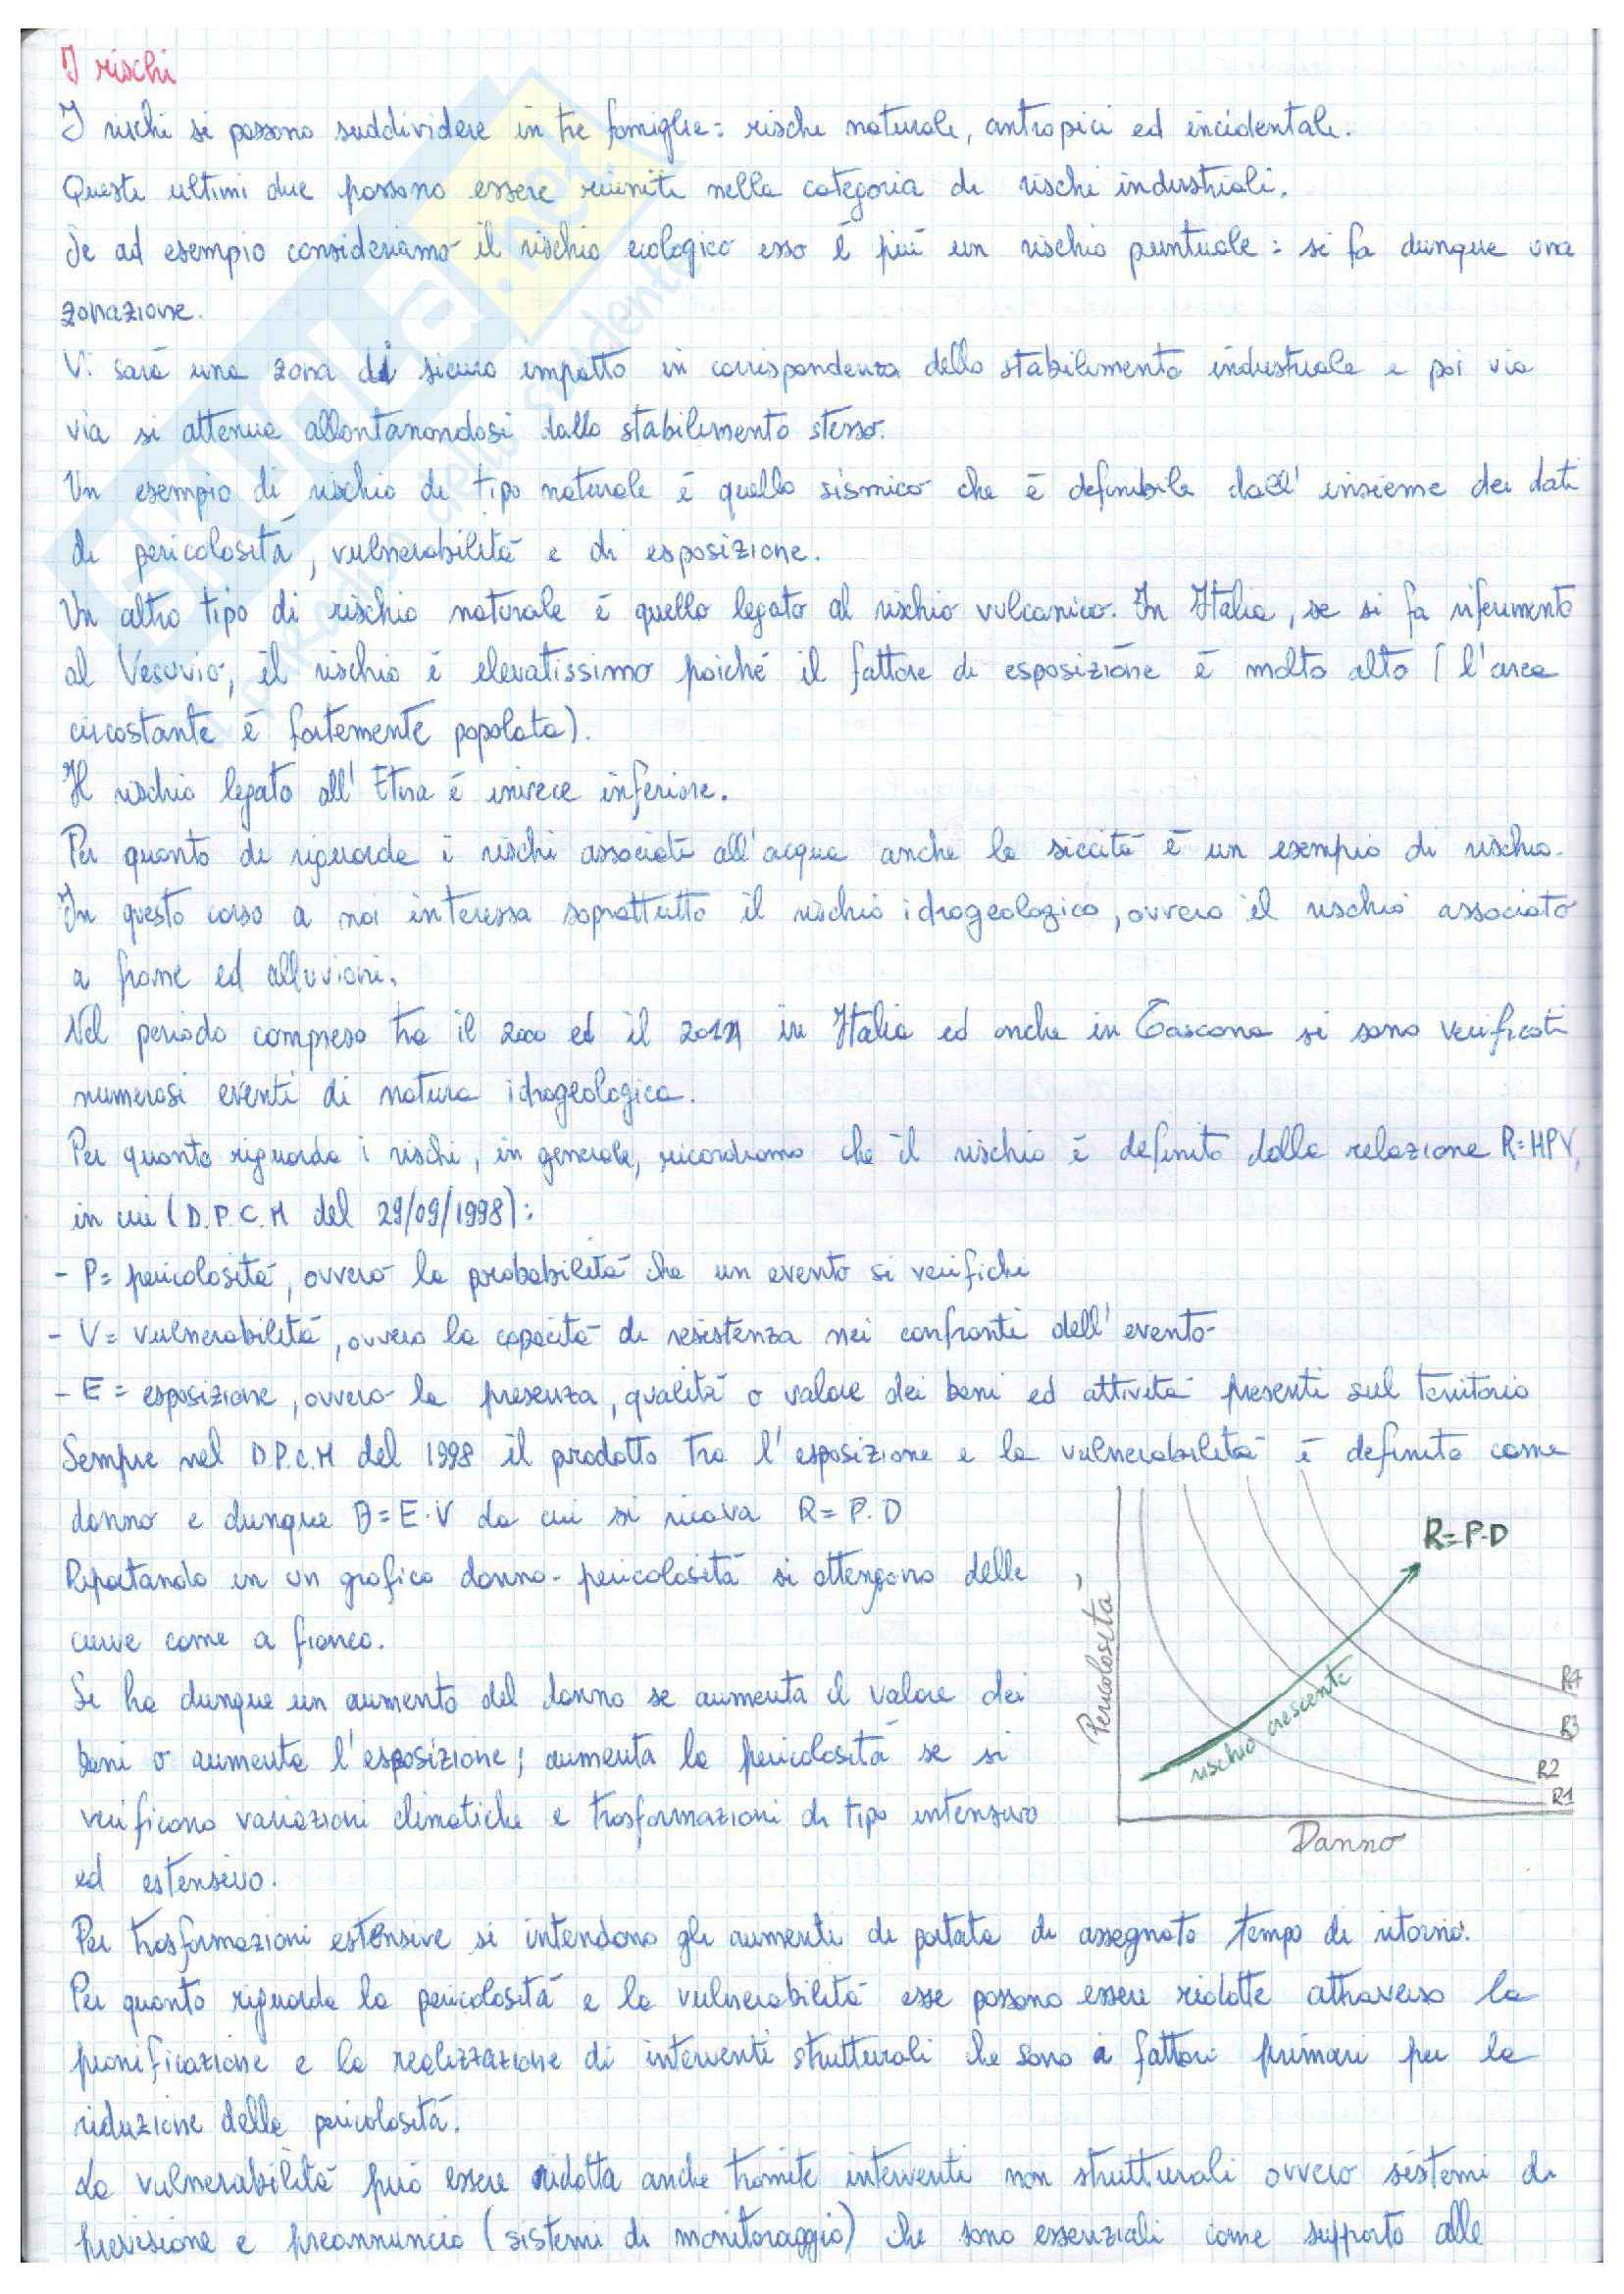 I rischi
I rischi si possono suddividere in tre famiglie: rischi naturali, antropici ed incidentali.
Questi ultimi due possono essere riuniti nella categoria di rischi industriali.
Se ad esempio consideriamo il rischio ecologico esso è più un rischio puntuale: si fa dunque una
zonazione.
Vi sarà una zona di sicuro impatto in corrispondenza dello stabilimento industriale e poi via
via si attenua allontanandosi dallo stabilimento stesso.
Un esempio di rischio di tipo naturale è quello sismico che è definibile dall'insieme dei dati
di pericolosità, vulnerabilità e di esposizione.
Un altro tipo di rischio naturale è quello legato al rischio vulcanico. In Italia, se si fa riferimento
al Vesuvio, il rischio è elevatissimo poiché il fattore di esposizione è molto alto (l'area
circostante è fortemente popolata).
Il rischio legato all'Etna è invece inferiore.
Per quanto di riguarda i rischi associati all'acqua anche la siccità è un esempio di rischio.
In questo corso a noi interessa soprattutto il rischio idrogeologico, ovvero il rischio associato
a frane ed alluvioni.
Nel periodo compreso tra il 2000 ed il in Italia ed anche in Toscana si sono verificati
numerosi eventi di natura idrogeologica.
Per quanto riguarda i rischi, in generale, ricordiamo che il rischio è definito dalla relazione R=HPV,
in cui (D.P.C.M del 29/09/1998):
- P= pericolosità, ovvero la probabilità che un evento si verifichi
- V= vulnerabilità, ovvero la capacità di resistenza nei confronti dell'evento
- E = esposizione, ovvero la presenza, qualità o valore dei beni ed attività presenti sul territorio
Sempre nel D.P.C.M del 1998 il prodotto tra l'esposizione e la vulnerabilità è definito come
danno e dunque D=E·V da cui si ricava R= P·D
Riportando in un grafico danno-pericolosità si ottengono delle
curve come a fianco.
Si ha dunque un aumento del danno se aumenta il valore dei
beni o aumenta l'esposizione; aumenta la pericolosità se si
verificano variazioni climatiche e trasformazioni di tipo intensivo
ed estensivo.
R=P·D
Pericolosità
rischio crescente
R4
R3
R2
R1
Danno
Per trasformazioni estensive si intendono gli aumenti di portata di assegnato tempo di ritorno.
Per quanto riguarda la pericolosità e la vulnerabilità esse possono essere ridotte attraverso la
pianificazione e la realizzazione di interventi strutturali che sono i fattori primari per la
riduzione della pericolosità.
La vulnerabilità può essere ridotta anche tramite interventi non strutturali ovvero sistemi di
previsione e preannuncio (sistemi di monitoraggio) che sono essenziali come supporto alle